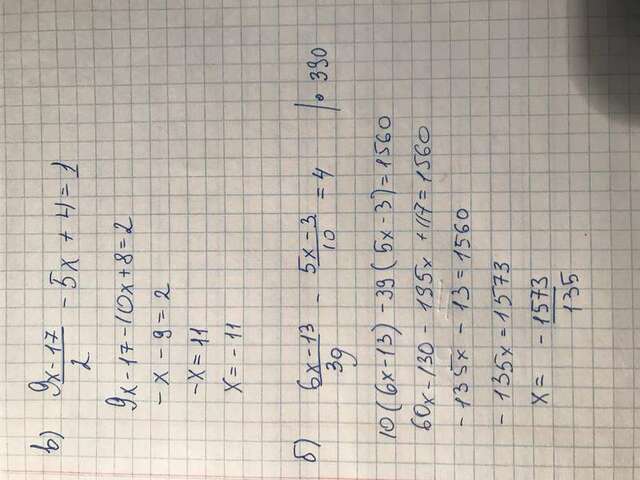 в) (9x-17)/2 - 5x + 4 = 1
9x-17-10x+8=2
-x-9=2
-x=11
x=-11
б) (6x-13)/39 - (5x-3)/10 = 4 |• 390
10(6x-13)-39(5x-3)=1560
60x-130-195x+117=1560
-135x-13=1560
-135x=1573
x= -1573/135